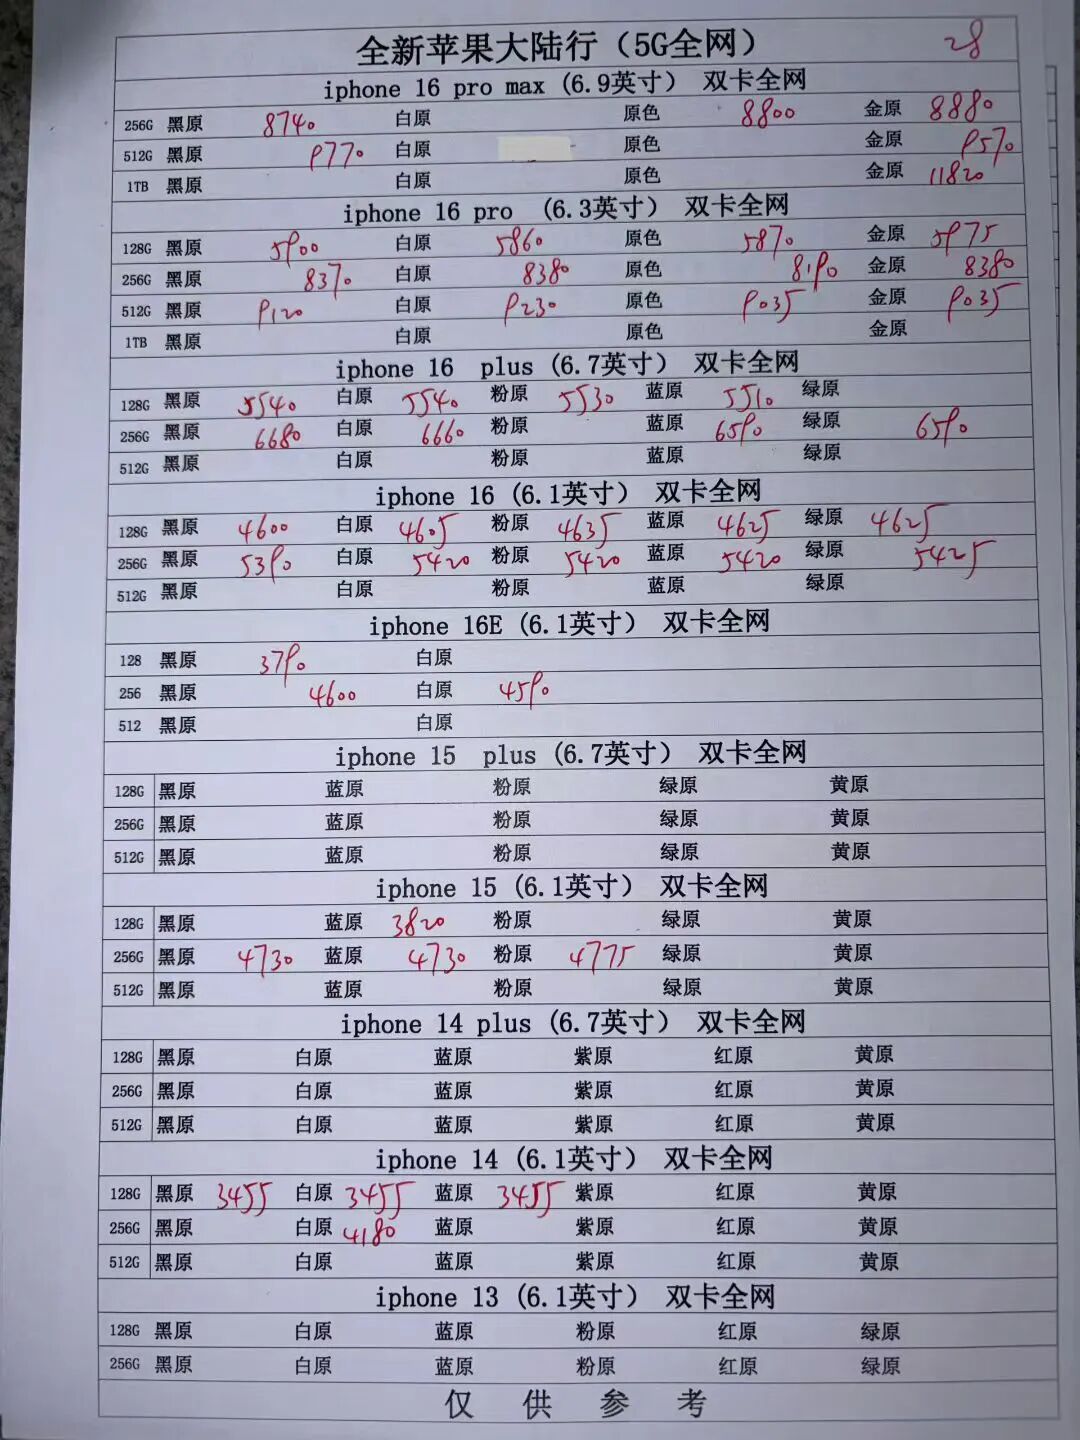 全新苹果大陆行（5G全网） 28
iphone 16 pro max (6.9英寸） 双卡全网
256G 黑原 8740 白原 原色 8800 金原 8880
512G 黑原 9770 白原 原色 金原 9570
1TB 黑原 白原 原色 金原 11820
iphone 16 pro （6.3英寸） 双卡全网
128G 黑原 5900 白原 5860 原色 5870 金原 5975
256G 黑原 8370 白原 8380 原色 8190 金原 8380
512G 黑原 9120 白原 9230 原色 9035 金原 9035
1TB 黑原 白原 原色 金原
iphone 16 plus (6.7英寸） 双卡全网
128G 黑原 5540 白原 5540 粉原 5530 蓝原 5510 绿原
256G 黑原 6680 白原 6660 粉原 蓝原 6590 绿原 6590
512G 黑原 白原 粉原 蓝原 绿原
iphone 16 (6.1英寸） 双卡全网
128G 黑原 4600 白原 4605 粉原 4635 蓝原 4625 绿原 4625
256G 黑原 5390 白原 5420 粉原 5420 蓝原 5420 绿原 5425
512G 黑原 白原 粉原 蓝原 绿原
iphone 16E (6.1英寸） 双卡全网
128 黑原 3790 白原
256 黑原 4600 白原 4590
512 黑原 白原
iphone 15 plus (6.7英寸） 双卡全网
128G 黑原 蓝原 粉原 绿原 黄原
256G 黑原 蓝原 粉原 绿原 黄原
512G 黑原 蓝原 粉原 绿原 黄原
iphone 15 (6.1英寸） 双卡全网
128G 黑原 蓝原 3820 粉原 绿原 黄原
256G 黑原 4730 蓝原 4730 粉原 4775 绿原 黄原
512G 黑原 蓝原 粉原 绿原 黄原
iphone 14 plus (6.7英寸） 双卡全网
128G 黑原 白原 蓝原 紫原 红原 黄原
256G 黑原 白原 蓝原 紫原 红原 黄原
512G 黑原 白原 蓝原 紫原 红原 黄原
iphone 14 (6.1英寸） 双卡全网
128G 黑原 3455 白原 3455 蓝原 3455 紫原 红原 黄原
256G 黑原 白原 4180 蓝原 紫原 红原 黄原
512G 黑原 白原 蓝原 紫原 红原 黄原
iphone 13 (6.1英寸） 双卡全网
128G 黑原 白原 蓝原 粉原 红原 绿原
256G 黑原 白原 蓝原 粉原 红原 绿原
仅 供 参 考